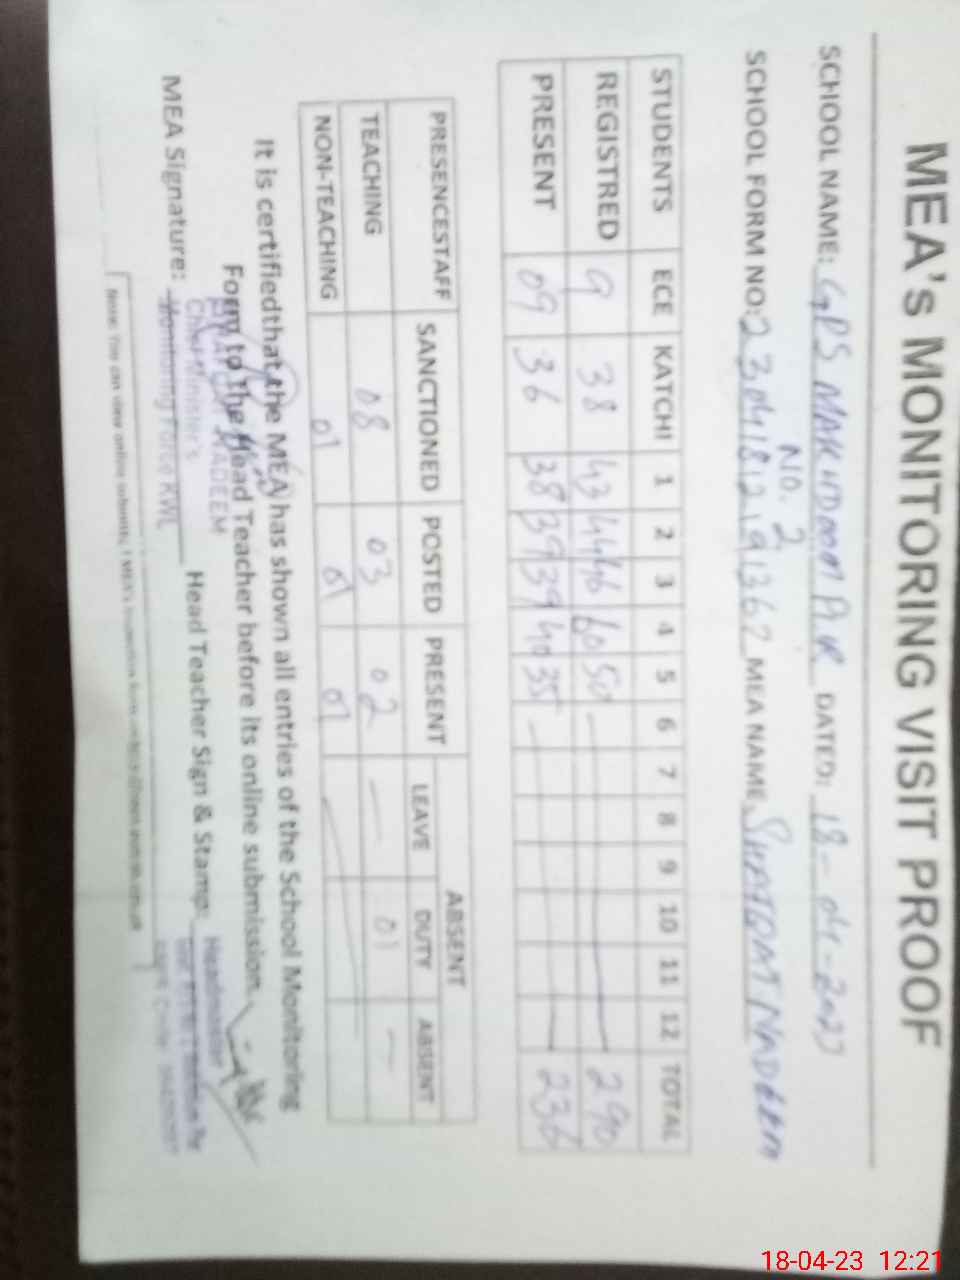 MEA's MONITORING VISIT PROOF
SCHOOL NAME: GPS MAKHDOOM PUR DATED: 18-04-2023
NO. 2
SCHOOL FORM NO: MEA NAME SHAFQAT NADEEM
STUDENTS ECE KATCHI 1 2 3 4 5 6 7 8 9 10 11 12 TOTAL
REGISTRED 9 38 43 44 46 60 50 — 290
PRESENT 09 36 38 39 39 40 35 — 236
PRESENCESTAFF SANCTIONED POSTED PRESENT ABSENT
LEAVE DUTY ABSENT
TEACHING 08 03 02 — 01 —
NON-TEACHING 01 01 01
It is certifiedthat the MEA has shown all entries of the School Monitoring
Form to the Head Teacher before its online submission.
MEA Signature: Head Teacher Sign & Stamp:
NADEEM
Chief Minister's
Monitoring Force KWL
Headmaster
Note: You can view online submitt
18-04-23 12:21